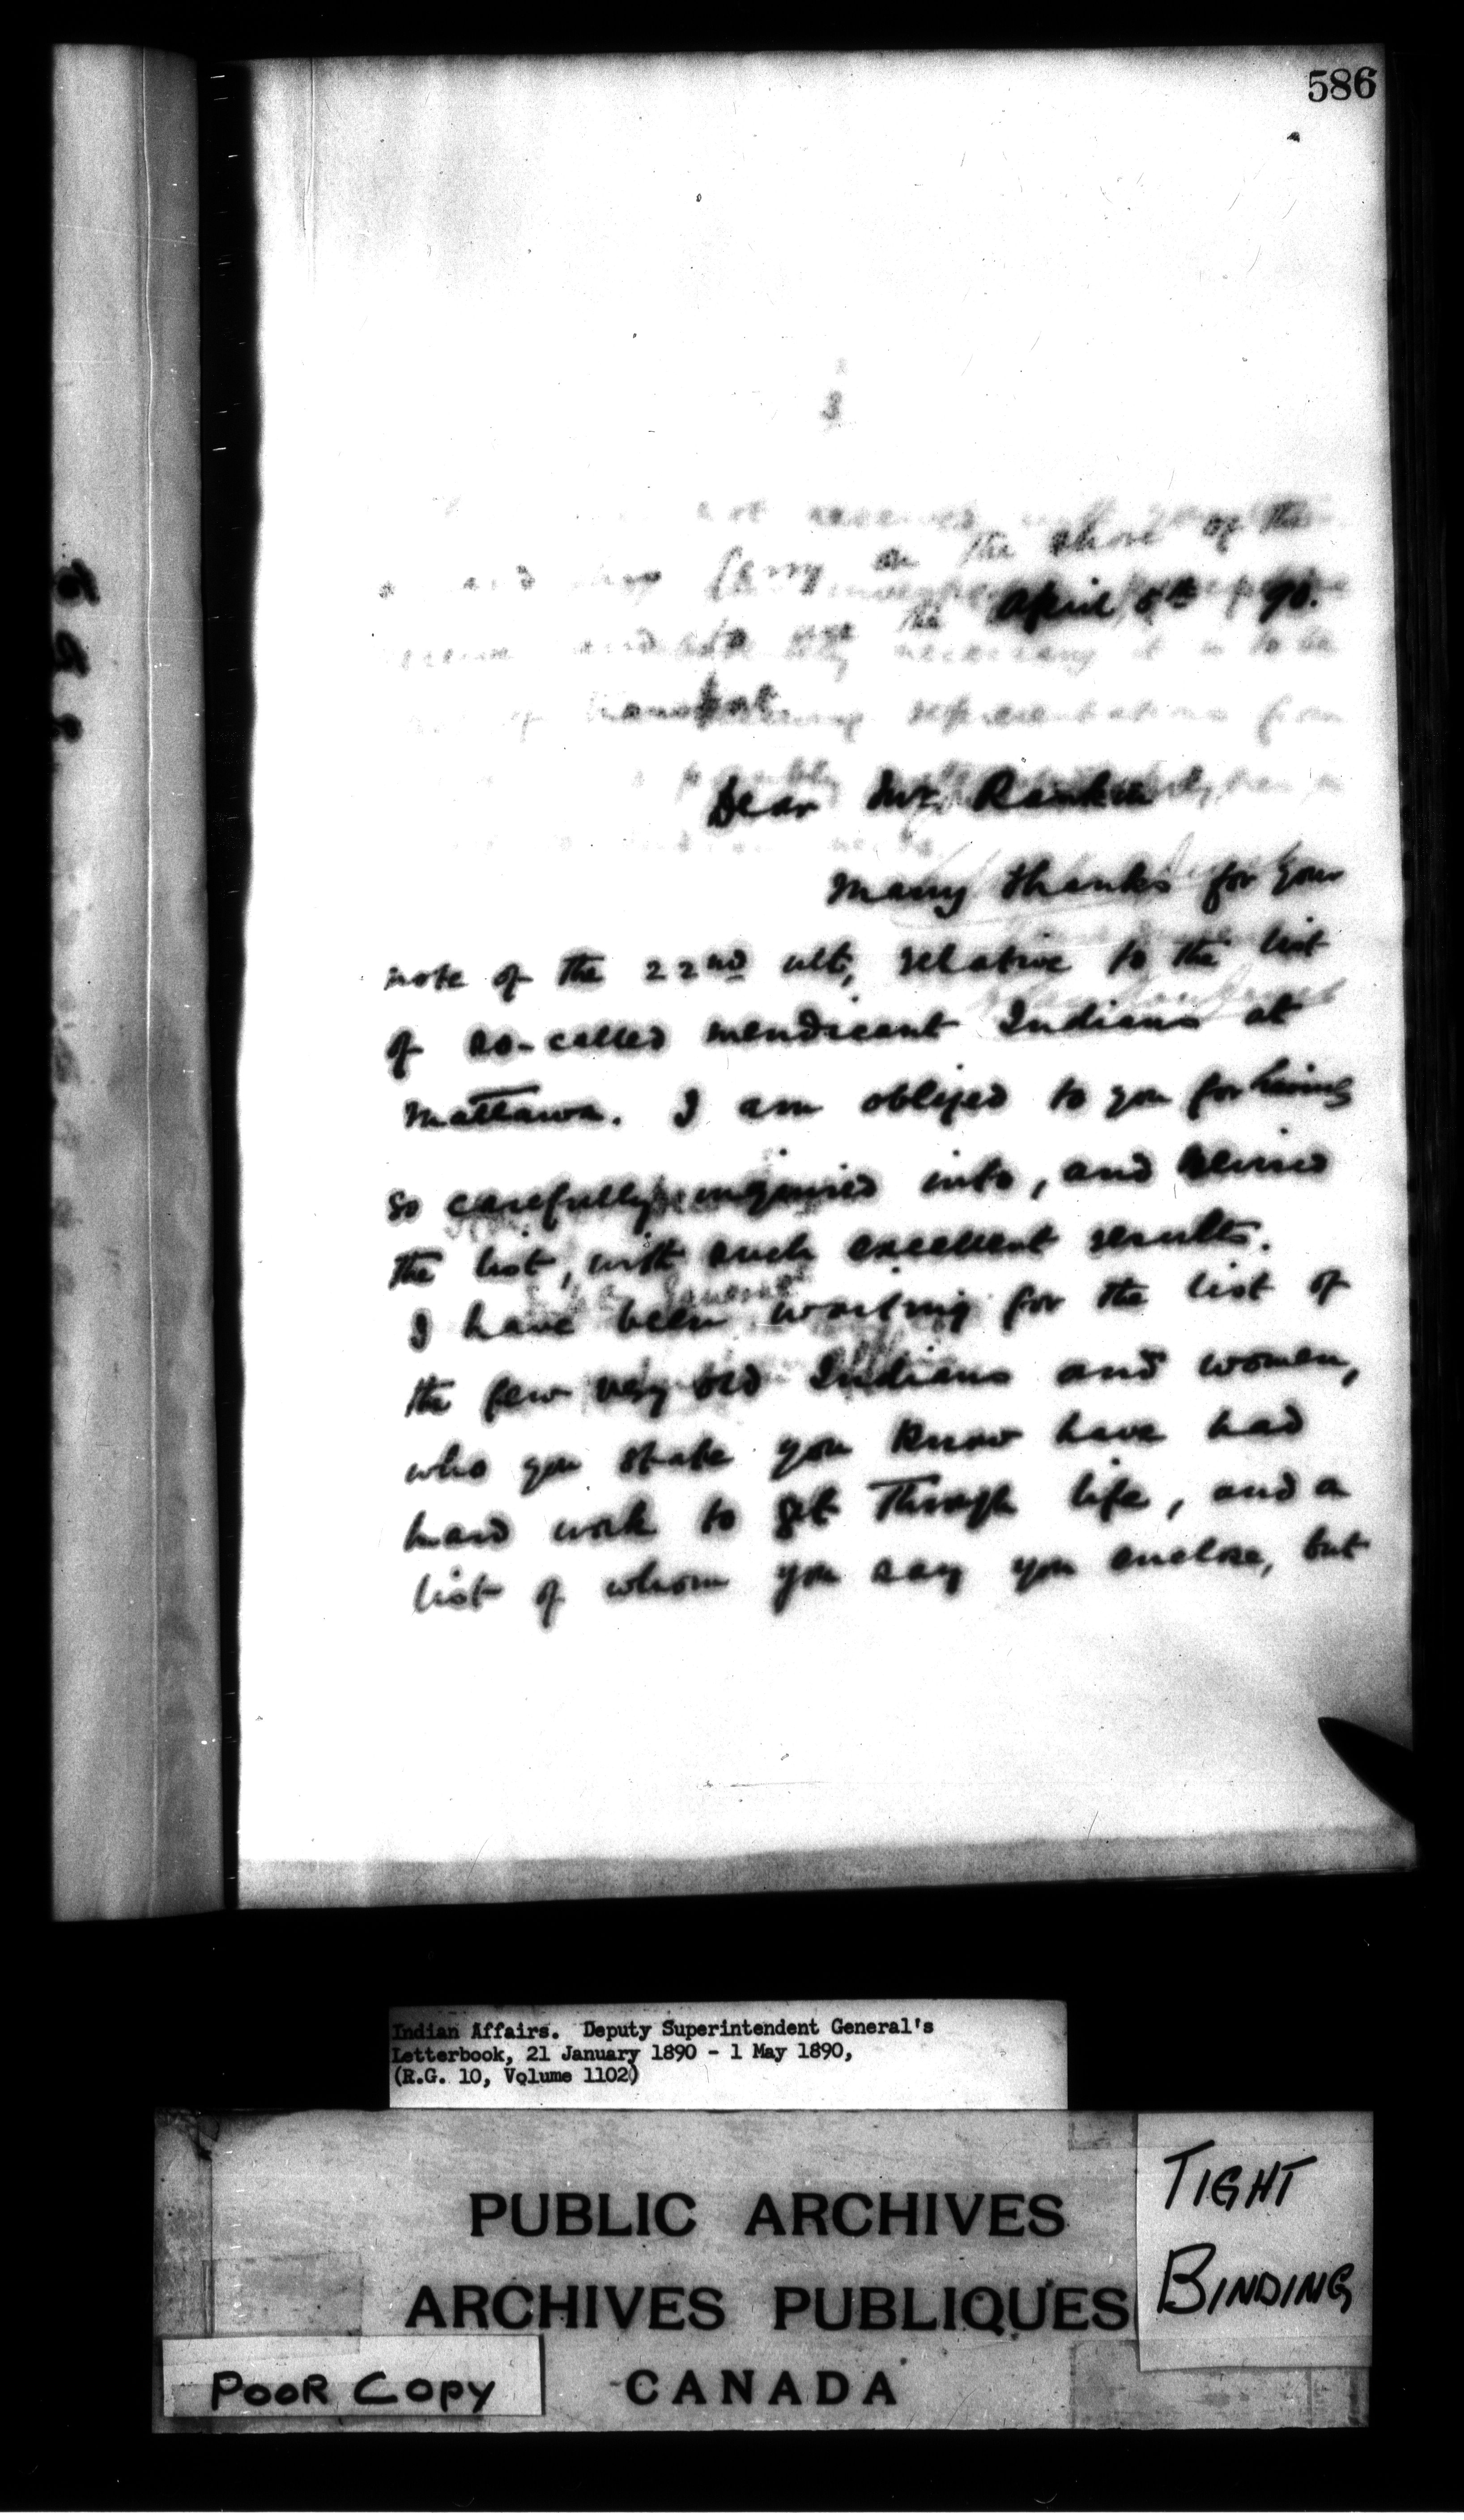 586
3
not received
and
on the shore of the
April 5th 90.
necessary it is to be
representations from
Dear Mr. Rankin
Many thanks for your
note of the 22nd ult, relative to the list
of so-called mendicant Indians at
Mattawa. I am obliged to you for having
so carefully inquired into, and revised
the list, with such excellent results.
I have been waiting for the list of
the few very old Indians and women,
who you state you know have had
hard work to get through life, and a
list of whom you say you enclose, but
Indian Affairs. Deputy Superintendent General's
Letterbook, 21 January 1890 - 1 May 1890,
(R.G. 10, Volume 1102)
PUBLIC ARCHIVES
ARCHIVES PUBLIQUES
CANADA
TIGHT
BINDING
POOR COPY